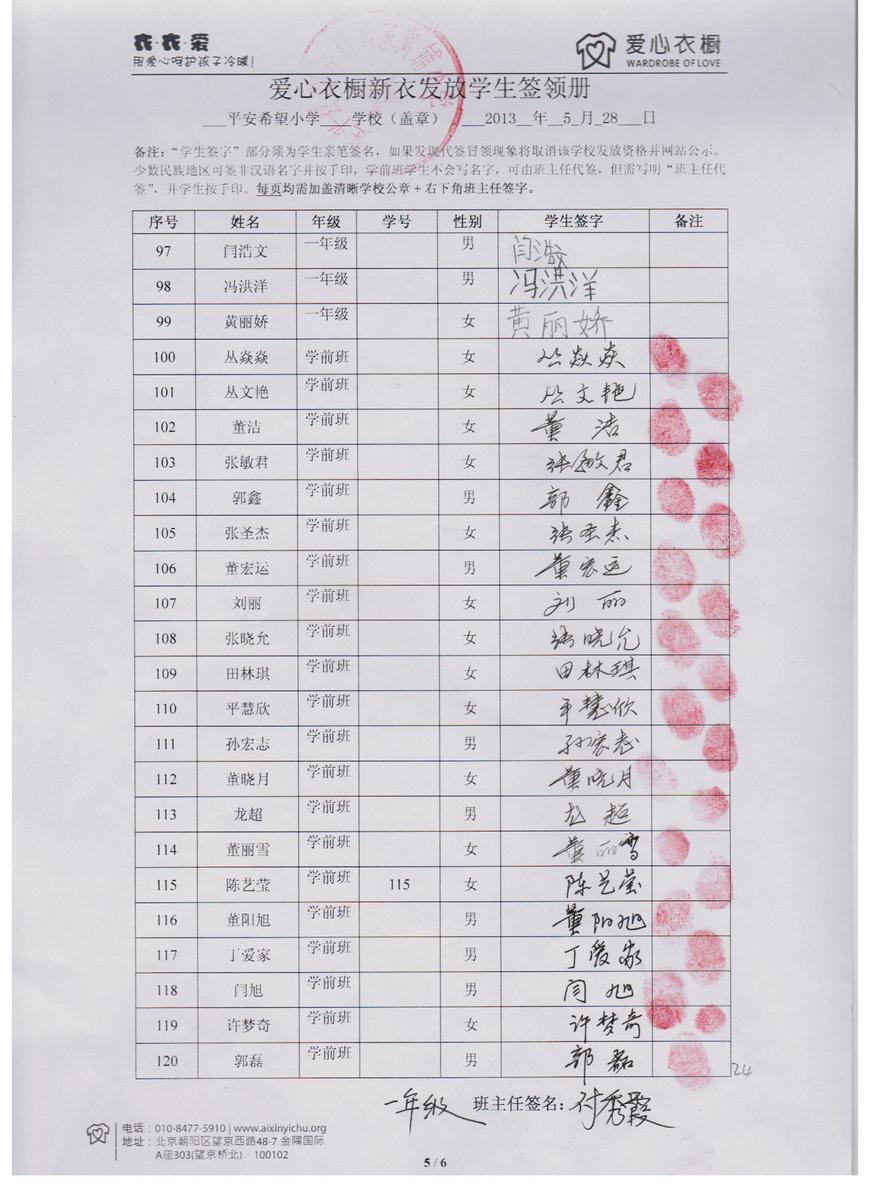 衣·衣·爱
用爱心呵护孩子冷暖!
爱心衣橱
WARDROBE OF LOVE
爱心衣橱新衣发放学生签领册
___平安希望小学____学校（盖章） ___2013__年__5_月_28___日
备注：“学生签字”部分须为学生亲笔签名，如果发现代签冒领现象将取消该学校发放资格并网站公示。
少数民族地区可签非汉语名字并按手印，学前班学生不会写名字，可由班主任代签，但需写明“班主任代
签”，并学生按手印。每页均需加盖清晰学校公章＋右下角班主任签字。
序号 姓名 年级 学号 性别 学生签字 备注
97 闫浩文 一年级 男 闫浩文
98 冯洪洋 一年级 男 冯洪洋
99 黄丽娇 一年级 女 黄丽娇
100 丛焱焱 学前班 女 丛焱焱
101 丛文艳 学前班 女 丛文艳
102 董洁 学前班 女 董洁
103 张敏君 学前班 女 张敏君
104 郭鑫 学前班 男 郭鑫
105 张圣杰 学前班 女 张圣杰
106 董宏运 学前班 男 董宏运
107 刘丽 学前班 女 刘丽
108 张晓允 学前班 女 张晓允
109 田林琪 学前班 女 田林琪
110 平慧欣 学前班 女 平慧欣
111 孙宏志 学前班 男 孙宏志
112 董晓月 学前班 女 董晓月
113 龙超 学前班 男 龙超
114 董丽雪 学前班 女 董丽雪
115 陈艺莹 学前班 115 女 陈艺莹
116 董阳旭 学前班 男 董阳旭
117 丁爱家 学前班 男 丁爱家
118 闫旭 学前班 男 闫旭
119 许梦奇 学前班 女 许梦奇
120 郭磊 学前班 男 郭磊
24
一年级 班主任签名：付秀霞
电话：010-8477-5910 | www.aixinyichu.org
地址：北京朝阳区望京西路48-7 金隅国际
A座303(望京桥北)·100102
5 / 6